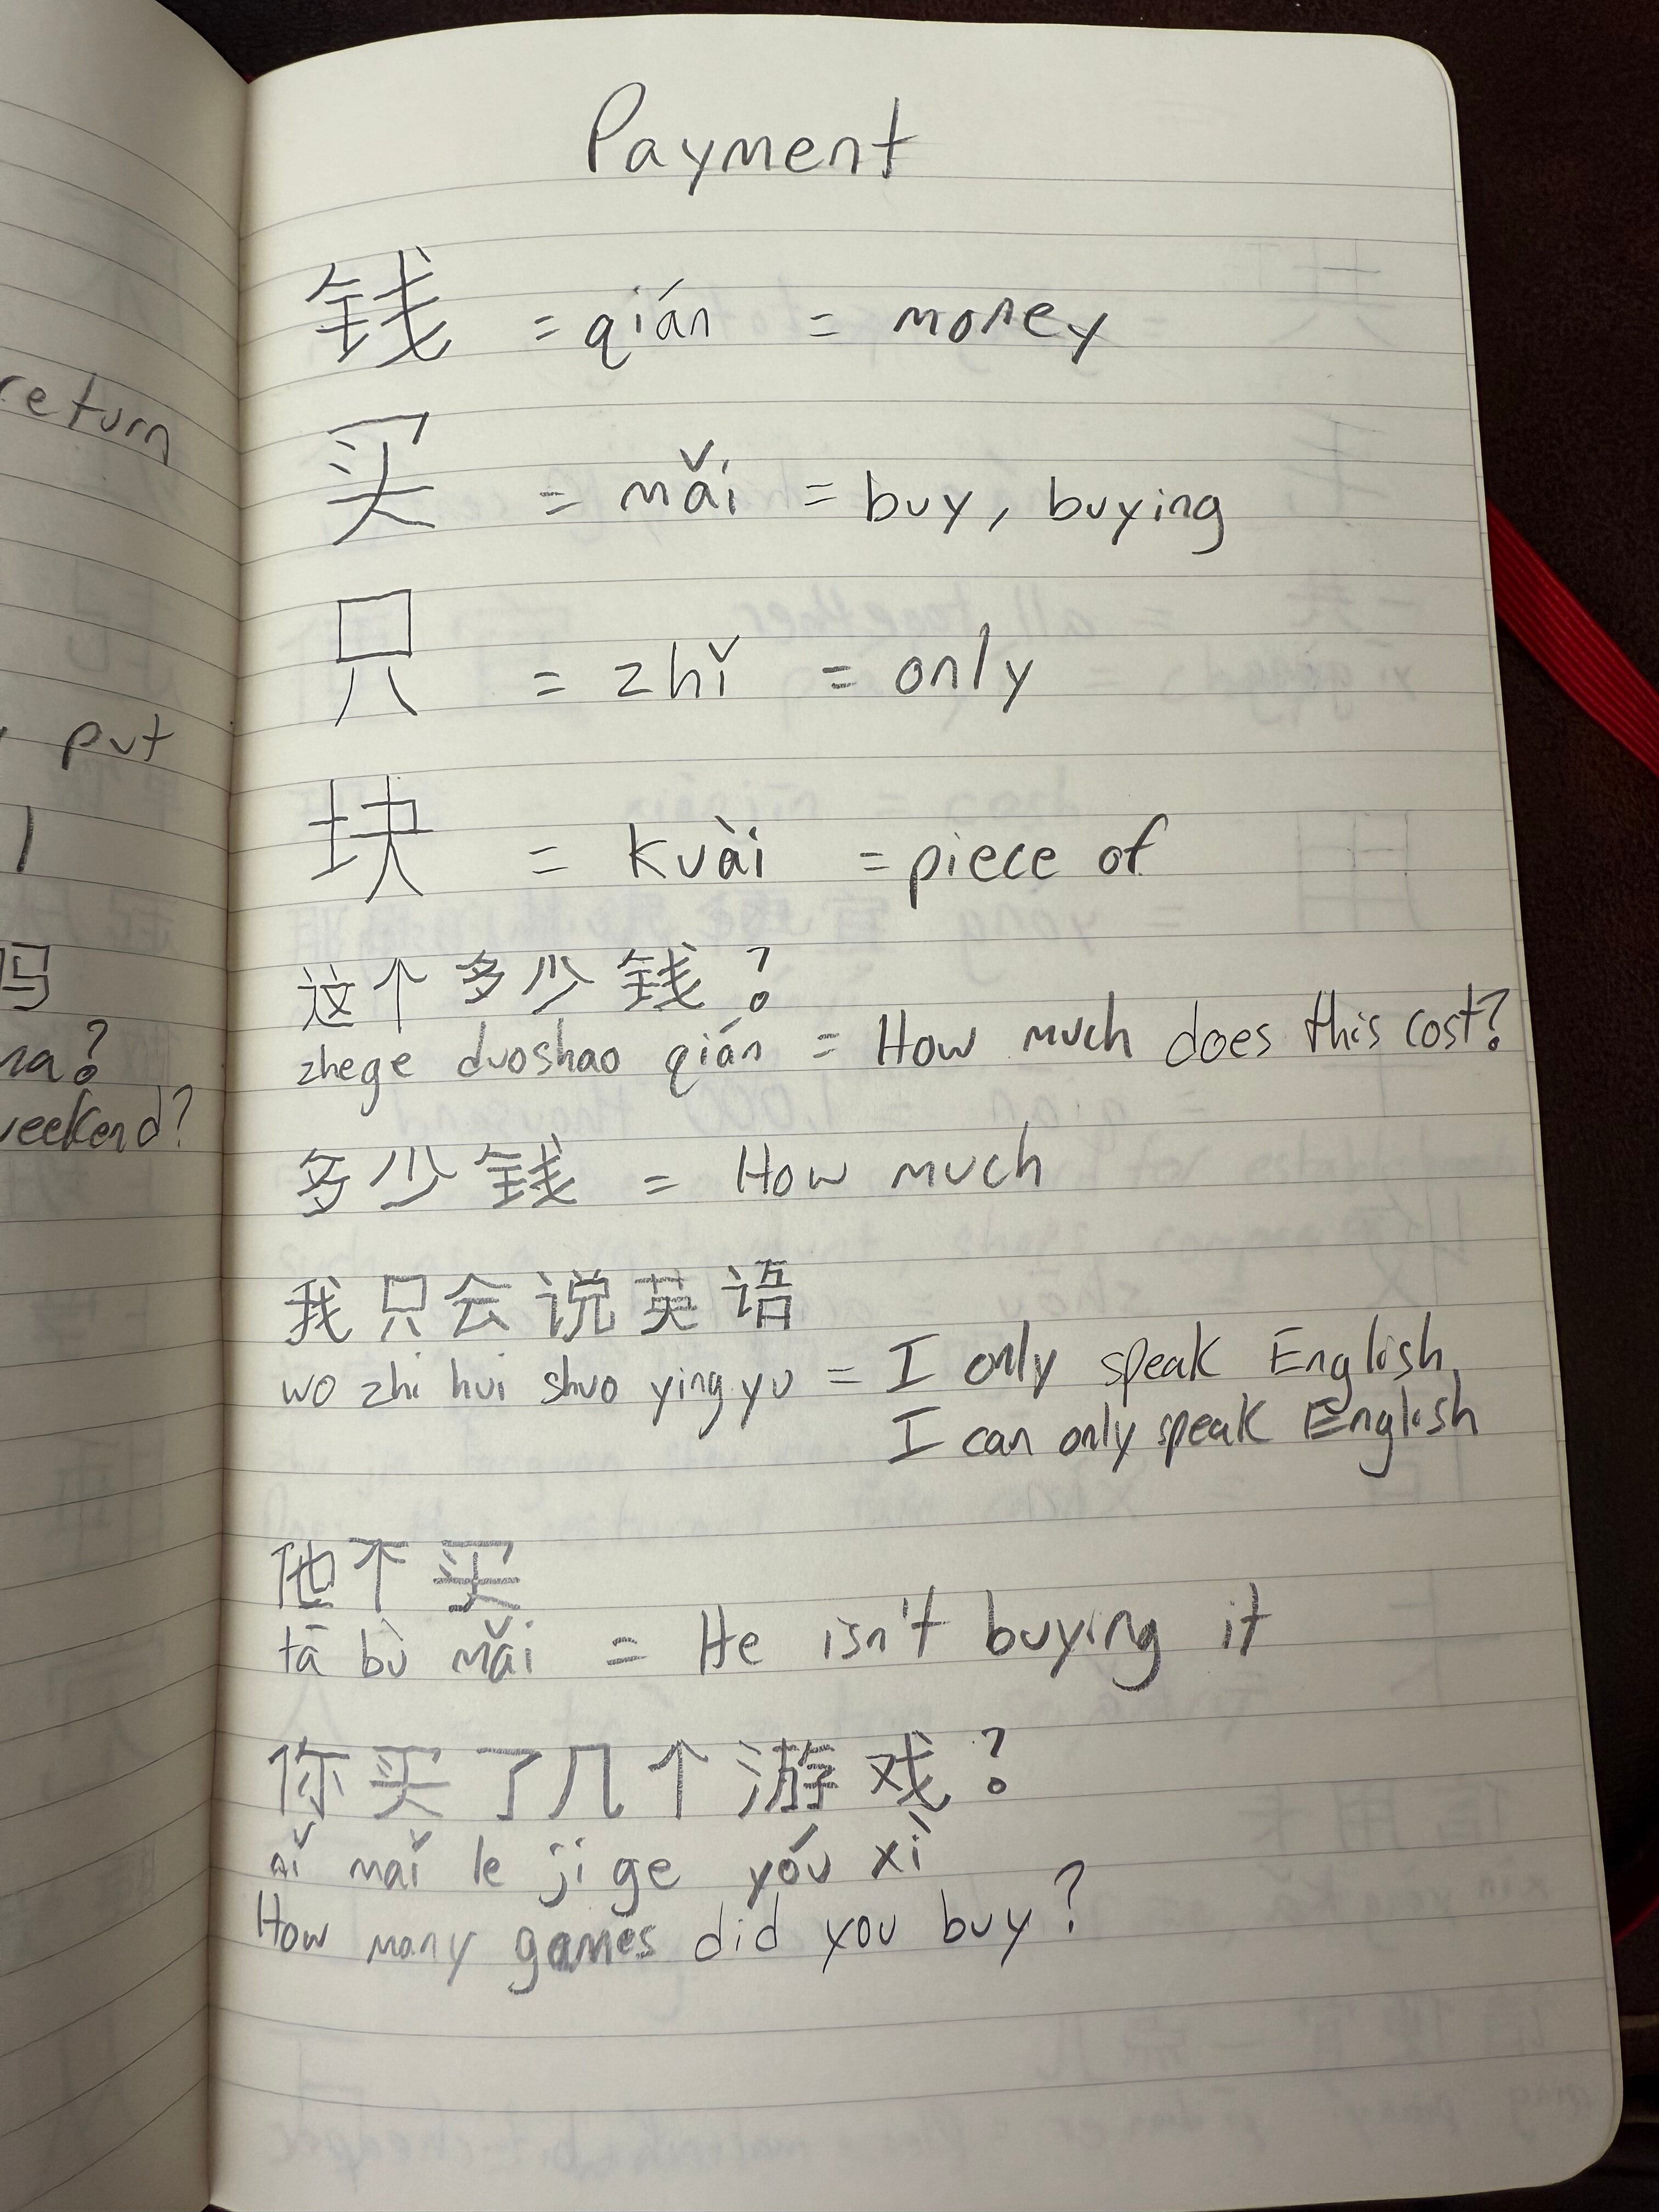 return
put
吗
Payment
钱 = qián = money
买 = mǎi = buy, buying
只 = zhǐ = only
块 = kuài = piece of
这个多少钱?
zhege duoshao qián = How much does this cost?
多少钱 = How much
我只会说英语
wo zhi hui shuo ying yu = I only speak English,
I can only speak English
他个买
tā bù mǎi = He isn't buying it
你买了几个游戏?
nǐ maǐ le ji ge yóu xì
How many games did you buy?